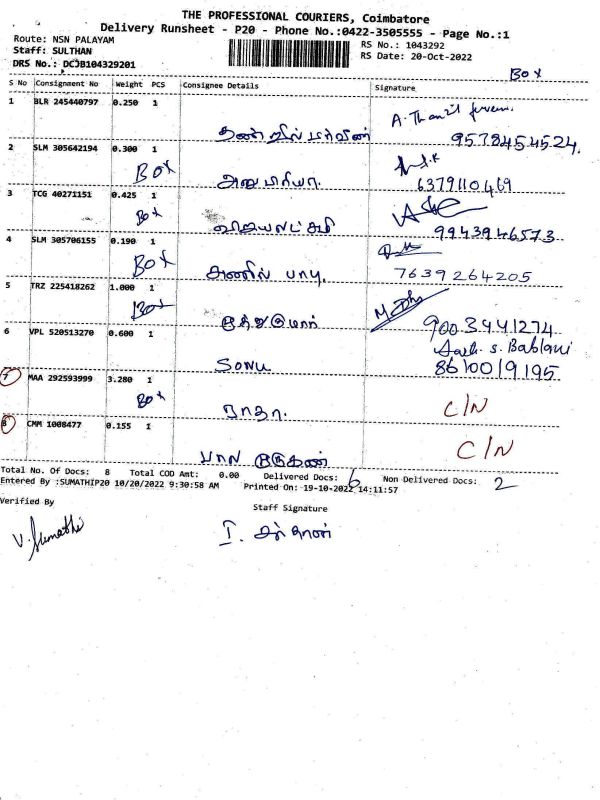 THE PROFESSIONAL COURIERS, Coimbatore
Delivery Runsheet - P20 - Phone No.:0422-3505555 - Page No.:1
Route: NSN PALAYAM
RS No.: 1043292
Staff: SULTHAN
RS Date: 20-Oct-2022
DRS No.: DCJB104329201
Box
S No Consignment No Weight PCS Consignee Details Signature
1 BLR 245440797 0.250 1
தண்
9578454524.
2 SLM 305642194 0.300 1
Box அனுபிரியா. 6379110469
3 TCG 40271151 0.425 1
Box விஜயலட்சுமி 9943946573
4 SLM 305706155 0.190 1
Box அனில் பாபு. 7639264205
5 TRZ 225418262 1.000 1
Box முத்துகுமார் 9003941274
6 VPL 520513270 0.600 1
S. Bablani
SONU 8610019195
7 MAA 292593999 3.280 1
Box ராதா. C/N
8 CMM 1008477 0.155 1
பால முருகன் C/N
Total No. Of Docs: 8 Total COD Amt: 0.00 Delivered Docs: 6 Non Delivered Docs: 2
Entered By :SUMATHIP20 10/20/2022 9:30:58 AM Printed On: 19-10-2022 14:11:57
Verified By Staff Signature
V. Sumathi I.